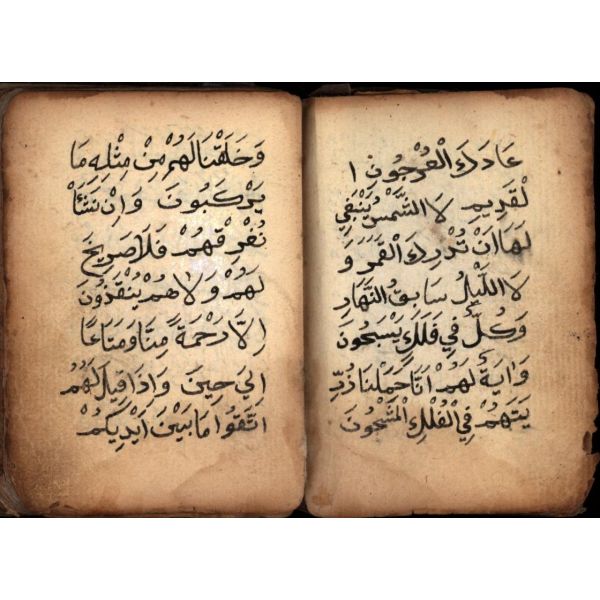 عَادَكَ الْعُرْجُونِ ا
لْقَدِيمِ لَا الشَّمْسُ يَنْبَغِي
لَهَا اَنْ تُدْرِكَ الْقَمَرَ وَ
لَا اللَّيْلُ سَابِقُ النَّهَارِ
وَكُلٌّ فِي فَلَكٍ يَسْبَحُونَ
وَايَةٌ لَهُمْ اَنَّا حَمَلْنَا ذُرِّ
يَتَهُمْ فِي الْفُلْكِ الْمَشْحُونَ
وَخَلَقْنَا لَهُمْ مِنْ مِثْلِهِ مَا
يَرْكَبُونَ وَاِنْ نَشَأْ
نُغْرِقْهُمْ فَلَا صَرِيخَ
لَهُمْ وَلَا هُمْ يُنْقَذُونَ
اِلَّا رَحْمَةً مِنَّا وَمَتَاعًا
اِلَي حِينَ وَاِذَا قِيلَ لَهُمُ
اتَّقُوا مَا بَيْنَ اَيْدِيكُمْ